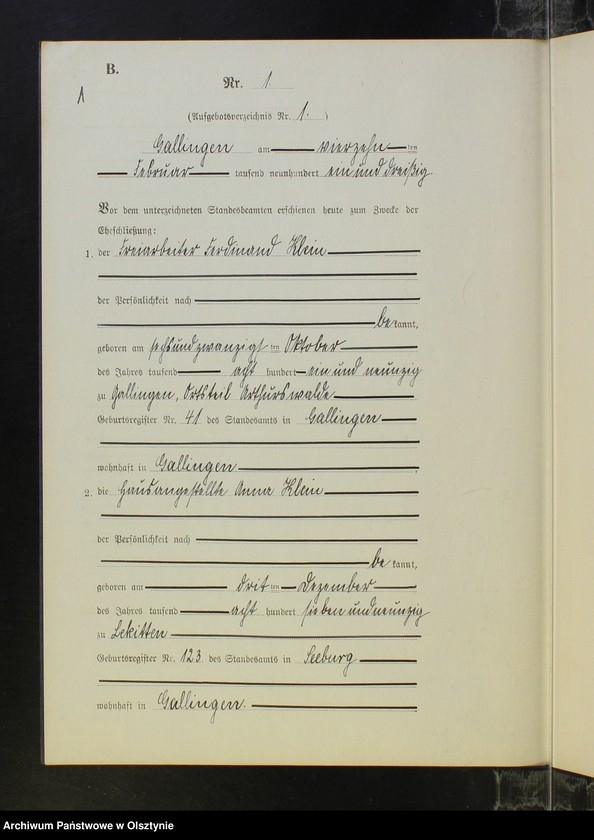 B.
Nr. 1.
1
(Aufgebotsverzeichnis Nr. 1.)
Gallingen am vierzehnten
Februar tausend neunhundert ein und dreißig.
Vor dem unterzeichneten Standesbeamten erschienen heute zum Zwecke der
Eheschließung:
1. der Freiarbeiter Ferdinand Klein
der Persönlichkeit nach
bekannt,
geboren am sechsundzwanzigsten Oktober
des Jahres tausend acht hundert ein und neunzig
zu Gallingen, Ortsteil Arthurswalde
Geburtsregister Nr. 41 des Standesamts in Gallingen
wohnhaft in Gallingen
2. die Hausangestellte Anna Klein
der Persönlichkeit nach
bekannt,
geboren am dritten Dezember
des Jahres tausend acht hundert sieben und neunzig
zu Lekitten
Geburtsregister Nr. 123 des Standesamts in Seeburg
wohnhaft in Gallingen.
Archiwum Państwowe w Olsztynie